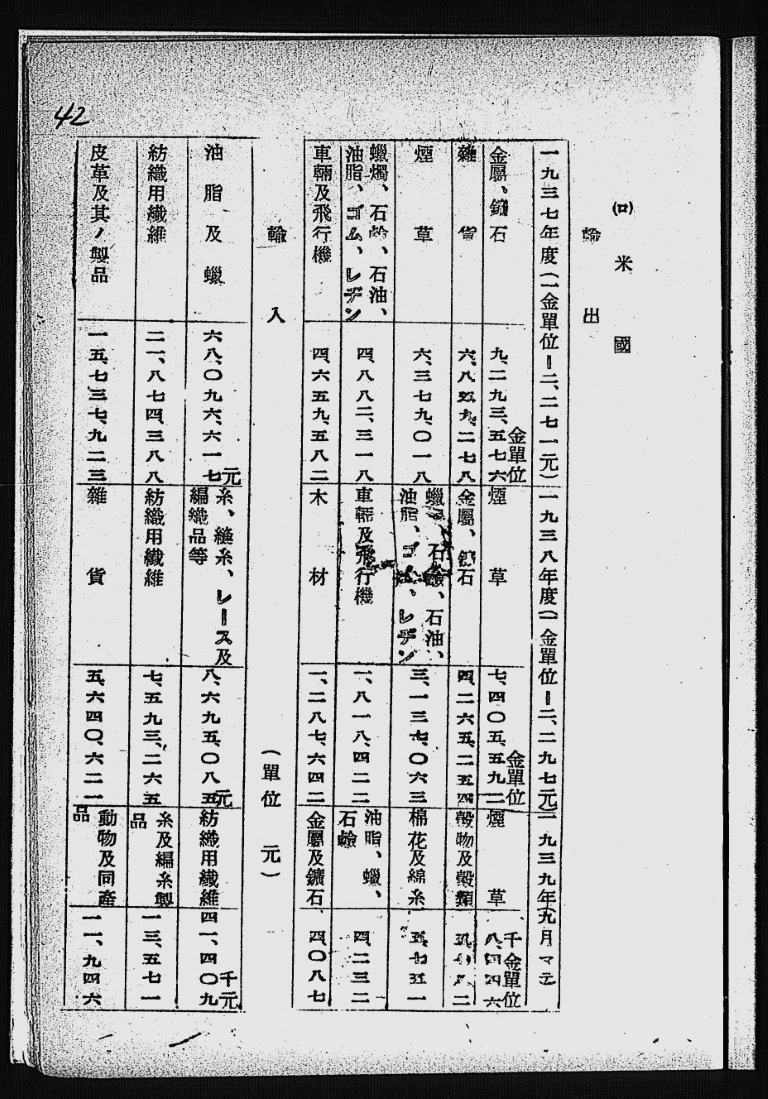 42
(ロ)米國
輸出
一九三七年度(一金單位=二、二七一元)
一九三八年度(一金單位=二、二九七元)
一九三九年九月マデ
金屬、鑛石
九、二九三、五七六金單位
煙草
七、四〇五、五九二金單位
煙草
千金單位
雜貨
金屬、鑛石
四、二六五、二五四
穀物及穀類
煙草
六、三七九、〇一八
蠟燭、石鹼、石油、
油脂、ゴム、レヂン
三、一三七、〇六三
棉花及綿糸
五、七五一
蠟燭、石鹼、石油、
油脂、ゴム、レヂン
四、八八二、三一八
車輛及飛行機
一、八一八、四二二
油脂、蠟、
石鹼
四、二三二
車輛及飛行機
四、六五九、五八二
木材
一、二八七、六四二
金屬及鑛石
四、〇八七
輸入
(單位 元)
油脂及蠟
六八、〇九六、六一七元
糸、縫糸、レース及
編織品等
八、六九五、〇八五元
紡織用纖維
四一、四〇九千元
紡織用纖維
二一、八七四、三八八
紡織用纖維
七、五九三、二六五
糸及編糸製
品
一三、五七一
皮革及其ノ製品
一五、七三七、九二三
雜貨
五、六四〇、六二一
動物及同產
品
一一、九四六